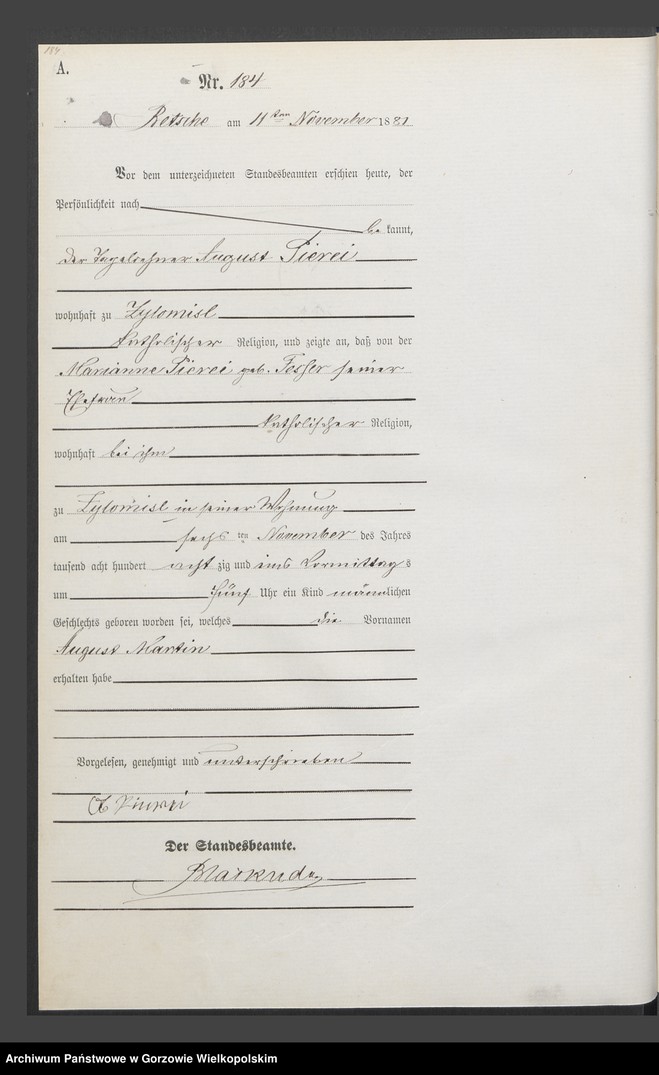 184
A.
Nr. 184
am 11ten November 1881
Vor dem unterzeichneten Standesbeamten erschien heute, der
Persönlichkeit nach
be kannt,
der Tagelöhner August Pierei
wohnhaft zu Zylomisl
katholischer Religion, und zeigte an, daß von der
Marianne Pierei geb. seiner
Ehefrau
katholischer Religion,
wohnhaft bei ihm
zu Zylomisl in seiner Wohnung
am sechs ten November des Jahres
tausend acht hundert acht zig und eins Vormittag s
um fünf Uhr ein Kind männlichen
Geschlechts geboren worden sei, welches die Vornamen
August Martin
erhalten habe
Vorgelesen, genehmigt und unterschrieben
Der Standesbeamte.
Archiwum Państwowe w Gorzowie Wielkopolskim